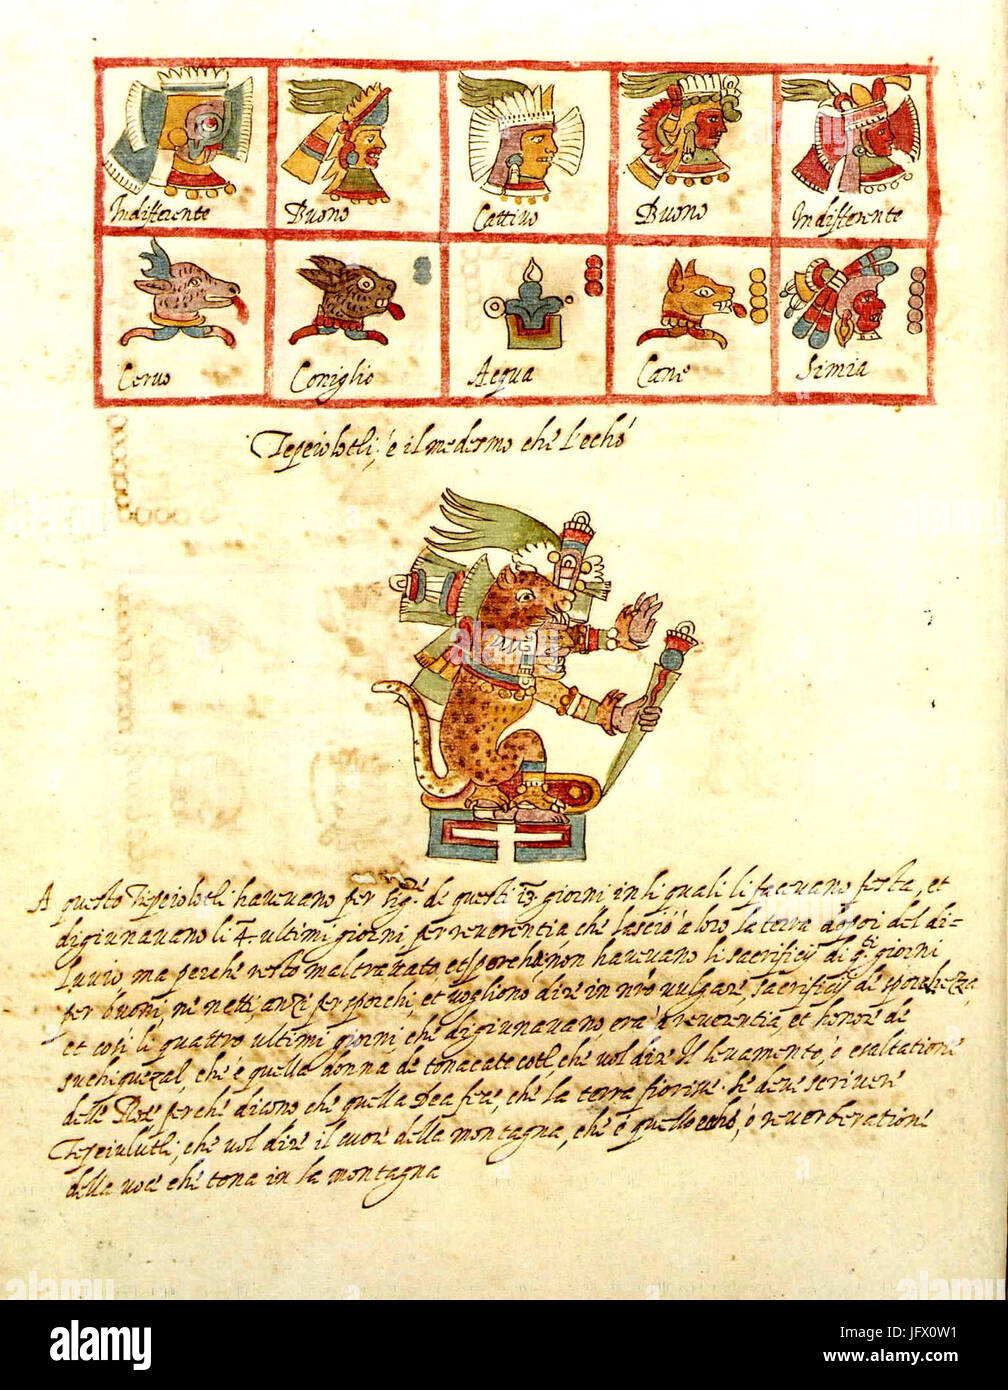 Indifferente Buono Cattiuo Buono Indifferente
Ceruo Coniglio Acqua Cane Simia
Tepeiolotli; è il medesmo chè l'echó
A questo Tepeiolotli havevano per sig.re de questi 13 giorni in li quali li facevano festa, et
digiunavano li 4. ultimi giorni per reverentia, chè lasciò a loro la terra dopoi del di-
luvio ma perchè resto mal trattato et non havevano li sacrificij di giorni
per buoni, nè netti, anzi per sporchi, et vogliono dire in nr̃o vulgarè, sacrificij dè sporchezza
et così li quattro ultimi giorni, chè digiunavano, era à reverentia, et honorè dè
suchiquezal, chè è quella donna dè tonacatecotl, chè vol dirè Il levamento, ò esaltationè
delle Rosè perchè dicono chè quella dea fecè, chè la terra fiorissè. Sè devè scriverè
Tepeiulutli; chè vol dirè il cuorè della montagna, chè è quello echò, ò reverberationè
della vocè chè tona in la montagna
alamy
alamy
Image ID: JFX0W1
www.alamy.com